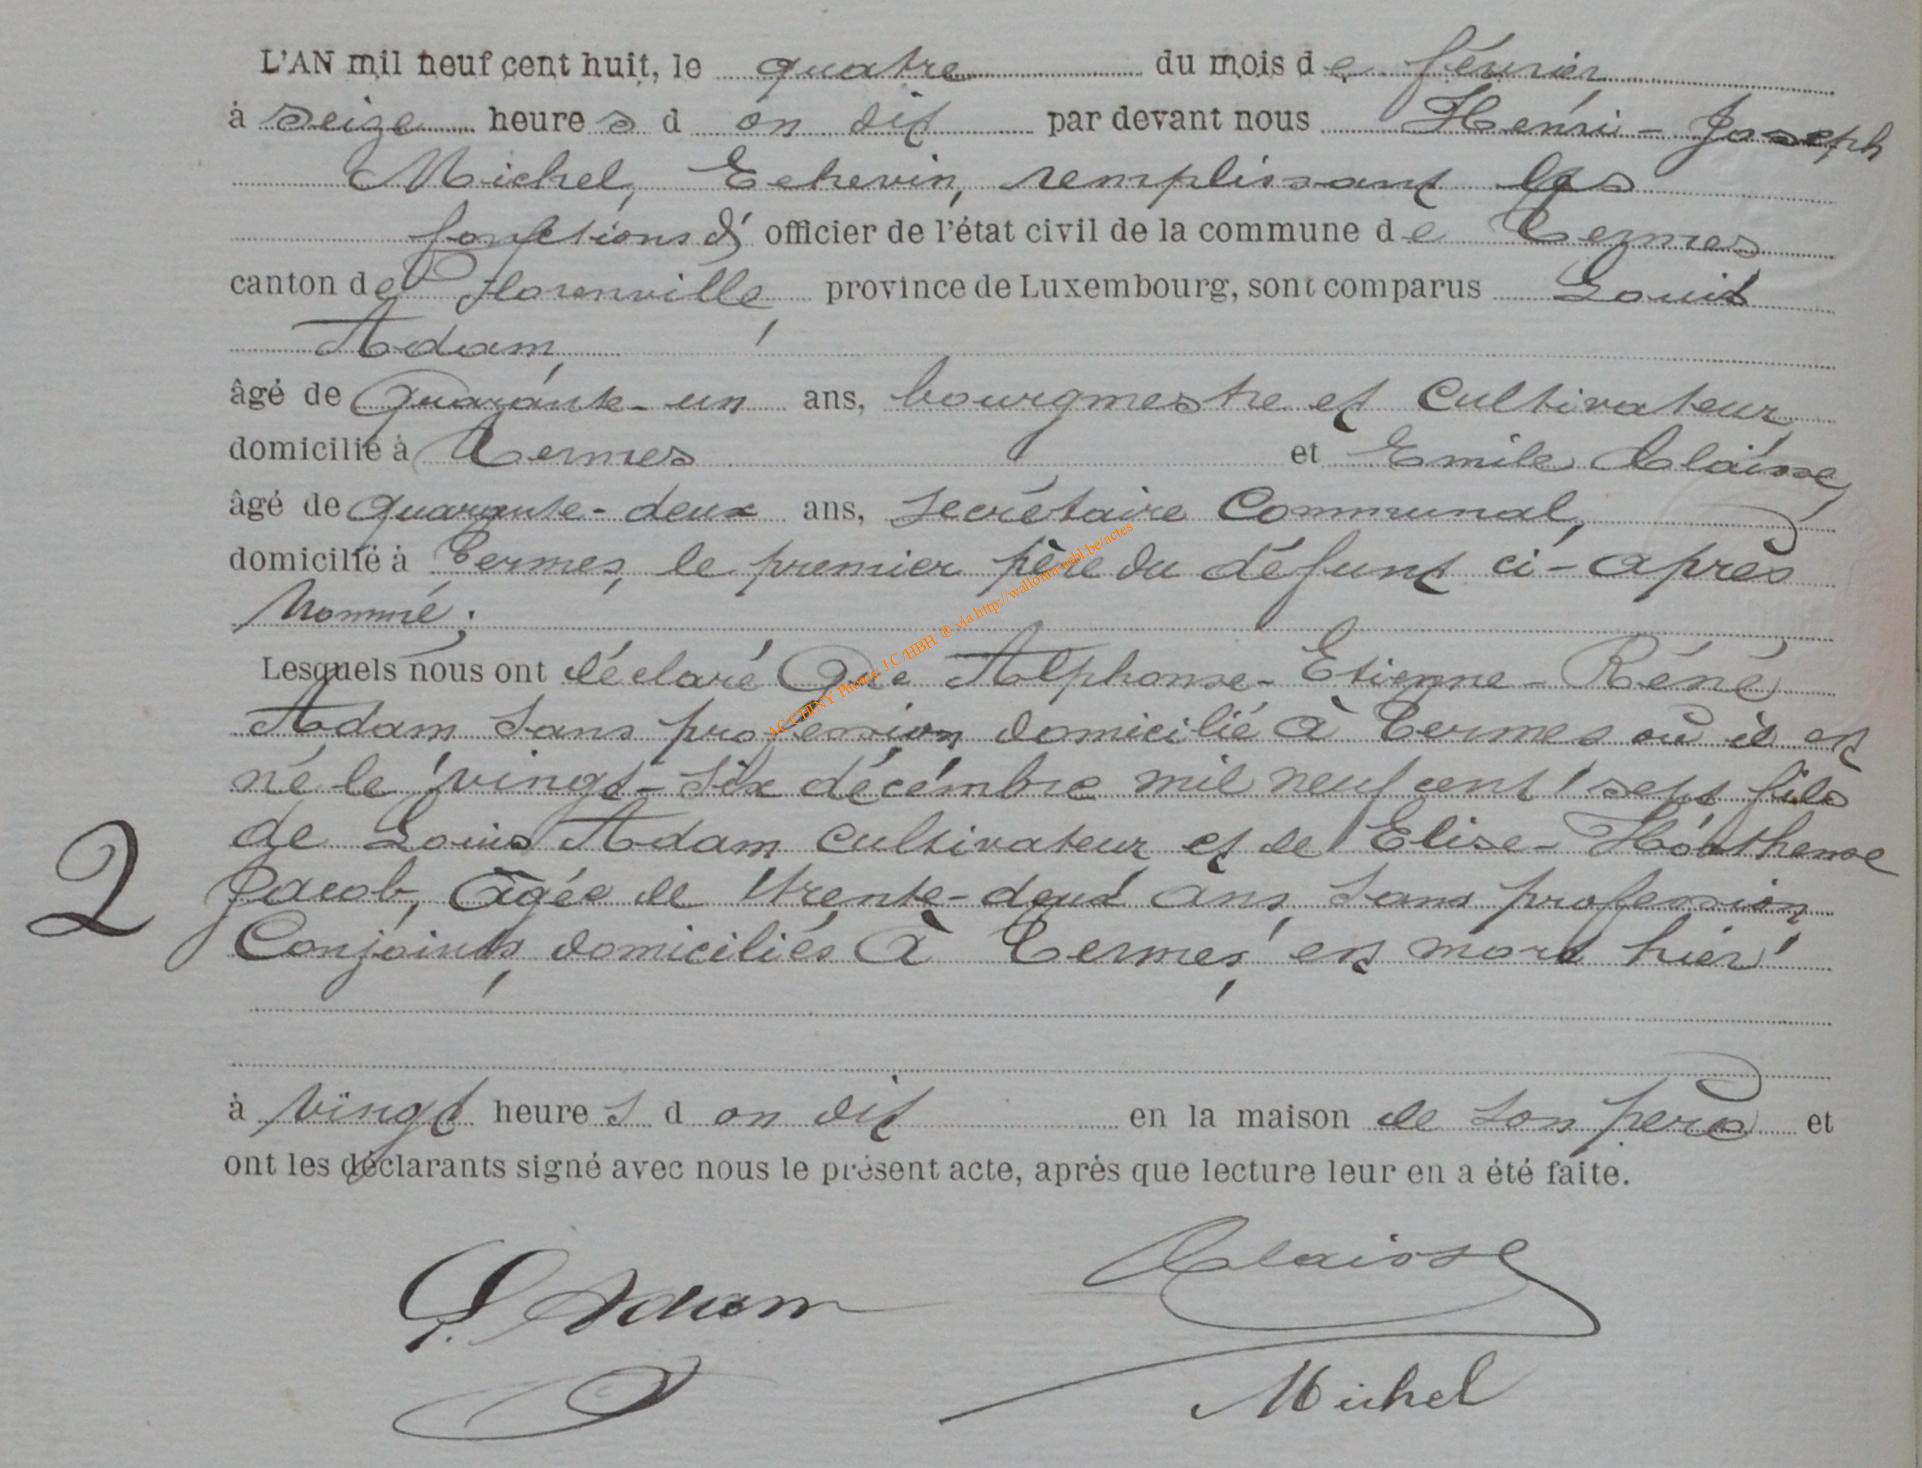 L'AN mil neuf cent huit, le quatre du mois de février
à seize heures d on dit par devant nous Henri-Joseph
Michel, Echevin, remplissant les
fonctions d' officier de l'état civil de la commune de Termes
canton de Florenville, province de Luxembourg, sont comparus Louis
Adam,
âgé de quarante-un ans, bourgmestre et cultivateur,
domicilié à Termes et Emile Claisse,
âgé de quarante-deux ans, secrétaire communal,
domicilié à Termes, le premier père du défunt ci-après
nommé;
Lesquels nous ont déclaré Que Alphonse-Etienne-Réné
Adam sans profession domicilié à Termes où il est
né le vingt-six décembre mil neuf cent sept fils
de Louis Adam cultivateur et de Elise-Horthense
Jacob, âgée de trente-deux ans, sans profession,
Conjoints, domiciliés à Termes, est mort hier
2
à vingt heures d on dit en la maison de son père et
ont les déclarants signé avec nous le présent acte, après que lecture leur en a été faite.
L. Adam Claisse
Michel